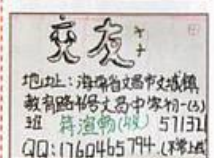 交友
地址：海南省文昌市文城镇
教育路书号文昌中学初一(3)
班 符渲勤(收) 571321
QQ:1760465794.(不常上线